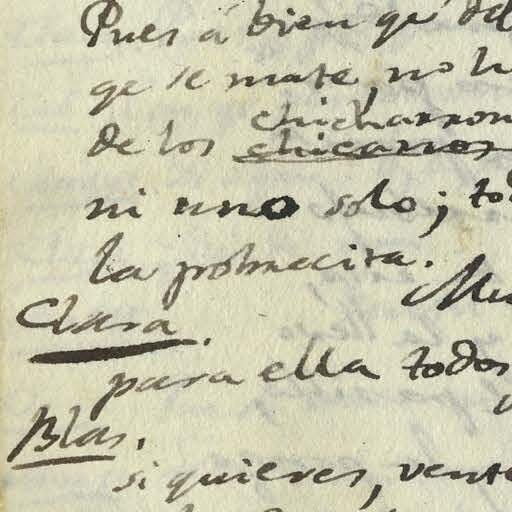 Pues á bien qe de
qe se mate, no h
chicharron
de los chicarros
ni uno solo; to
la probrecita.
Mu
Clara.
para ella todos
Blas.
si quieres, vent